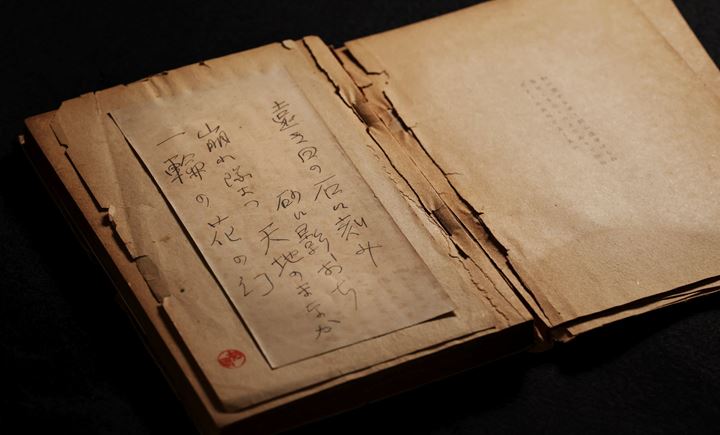 遠き日の石に刻み
砂に影おち
崩れ墜つ 天地のまなか
一輪の花の幻